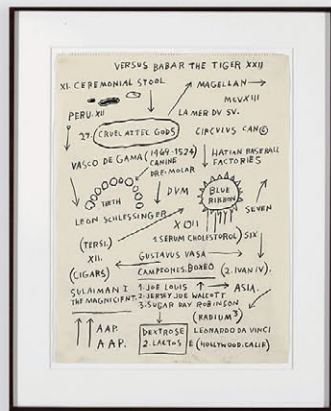 VERSUS BABAR THE TIGER XXII
XI. CEREMONIAL STOOL
MAGELLAN
PERU. XII
MCVXIII
LA MER DU SV.
27. CRUEL AZTEC GODS
CIRCVLVS CAN
VASCO DE GAMA (1469-1524)
CANINE
PRE-MOLAR
HATIAN BASEBALL
FACTORIES
TEETH
DVM
BLUE
RIBBON
LEON SCHLESSINGER
SEVEN
XOII
1. SERUM CHOLSTOROL) SIX
(TERSI.)
XII.
GUSTAVUS VASA
(CIGARS)
CAMPEONES. BOXEO
(2. IVAN IV).
SULAIMAN I
THE MAGNIFICENT.
1. JOE LOUIS
ASIA.
2. JERSEY JOE WALCOTT
3. SUGAR RAY ROBINSON
(RADIUM 3)
AAP.
AAP.
DEXTROSE
2. LACTOS E
LEONARDO DA VINCI
(HOLLYWOOD. CALIF)